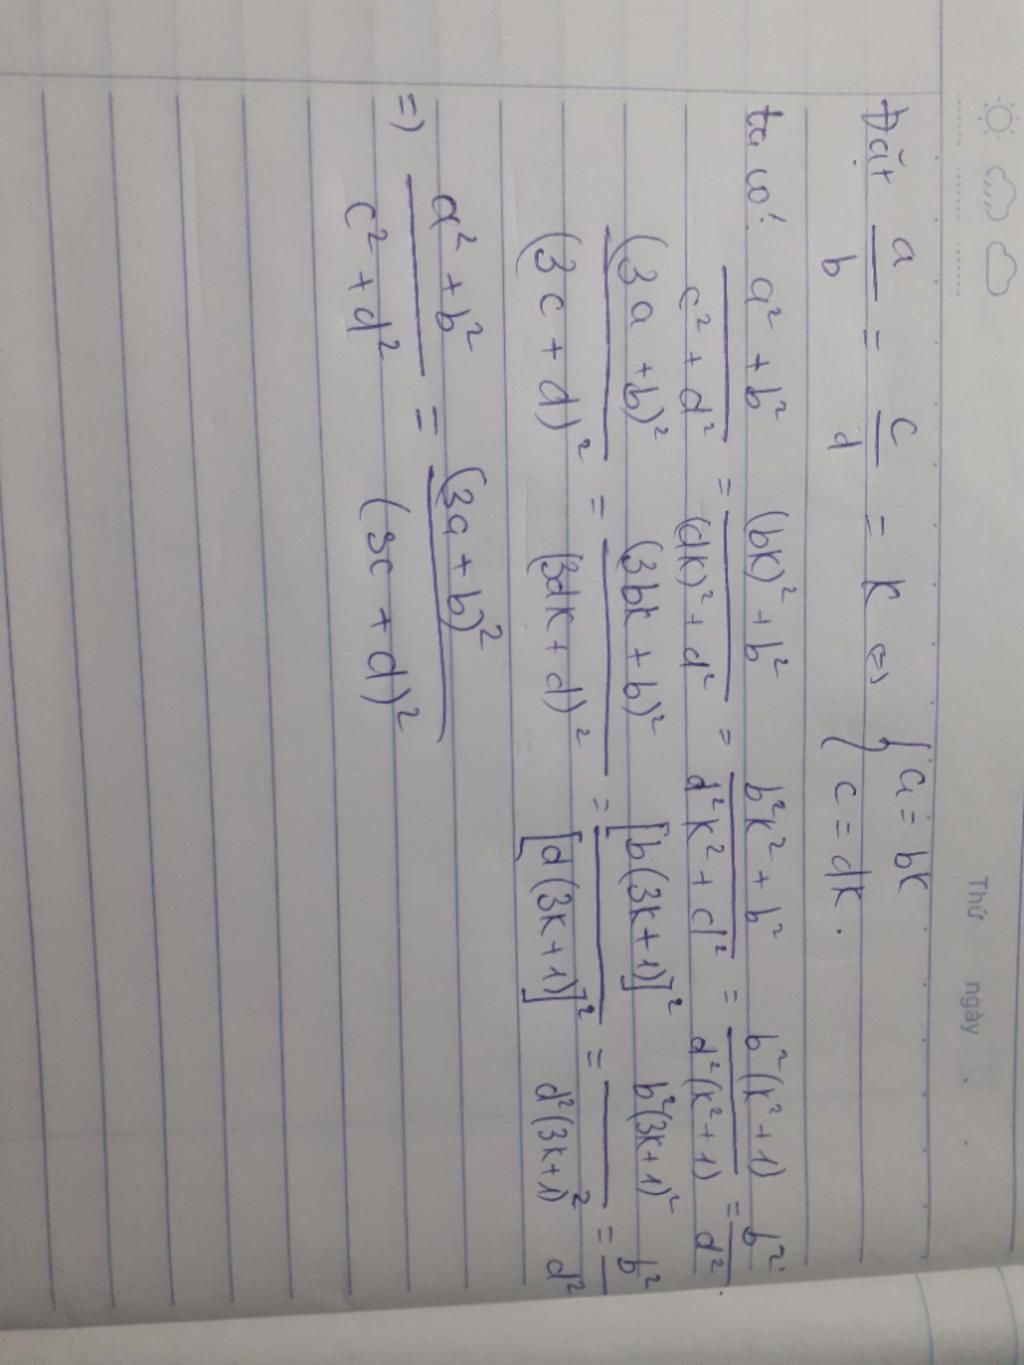 Thứ ngày
Đặt a/b = c/d = k ⇔ { a = bk
{ c = dk.
ta có: (a² + b²)/(c² + d²) = ((bk)² + b²)/((dk)² + d²) = (b²k² + b²)/(d²k² + d²) = (b²(k² + 1))/(d²(k² + 1)) = b²/d².
(3a + b)²/(3c + d)² = (3bk + b)²/(3dk + d)² = [b(3k + 1)]²/[d(3k + 1)]² = b²(3k + 1)²/d²(3k + 1)² = b²/d²
=) (a² + b²)/(c² + d²) = (3a + b)²/(3c + d)²